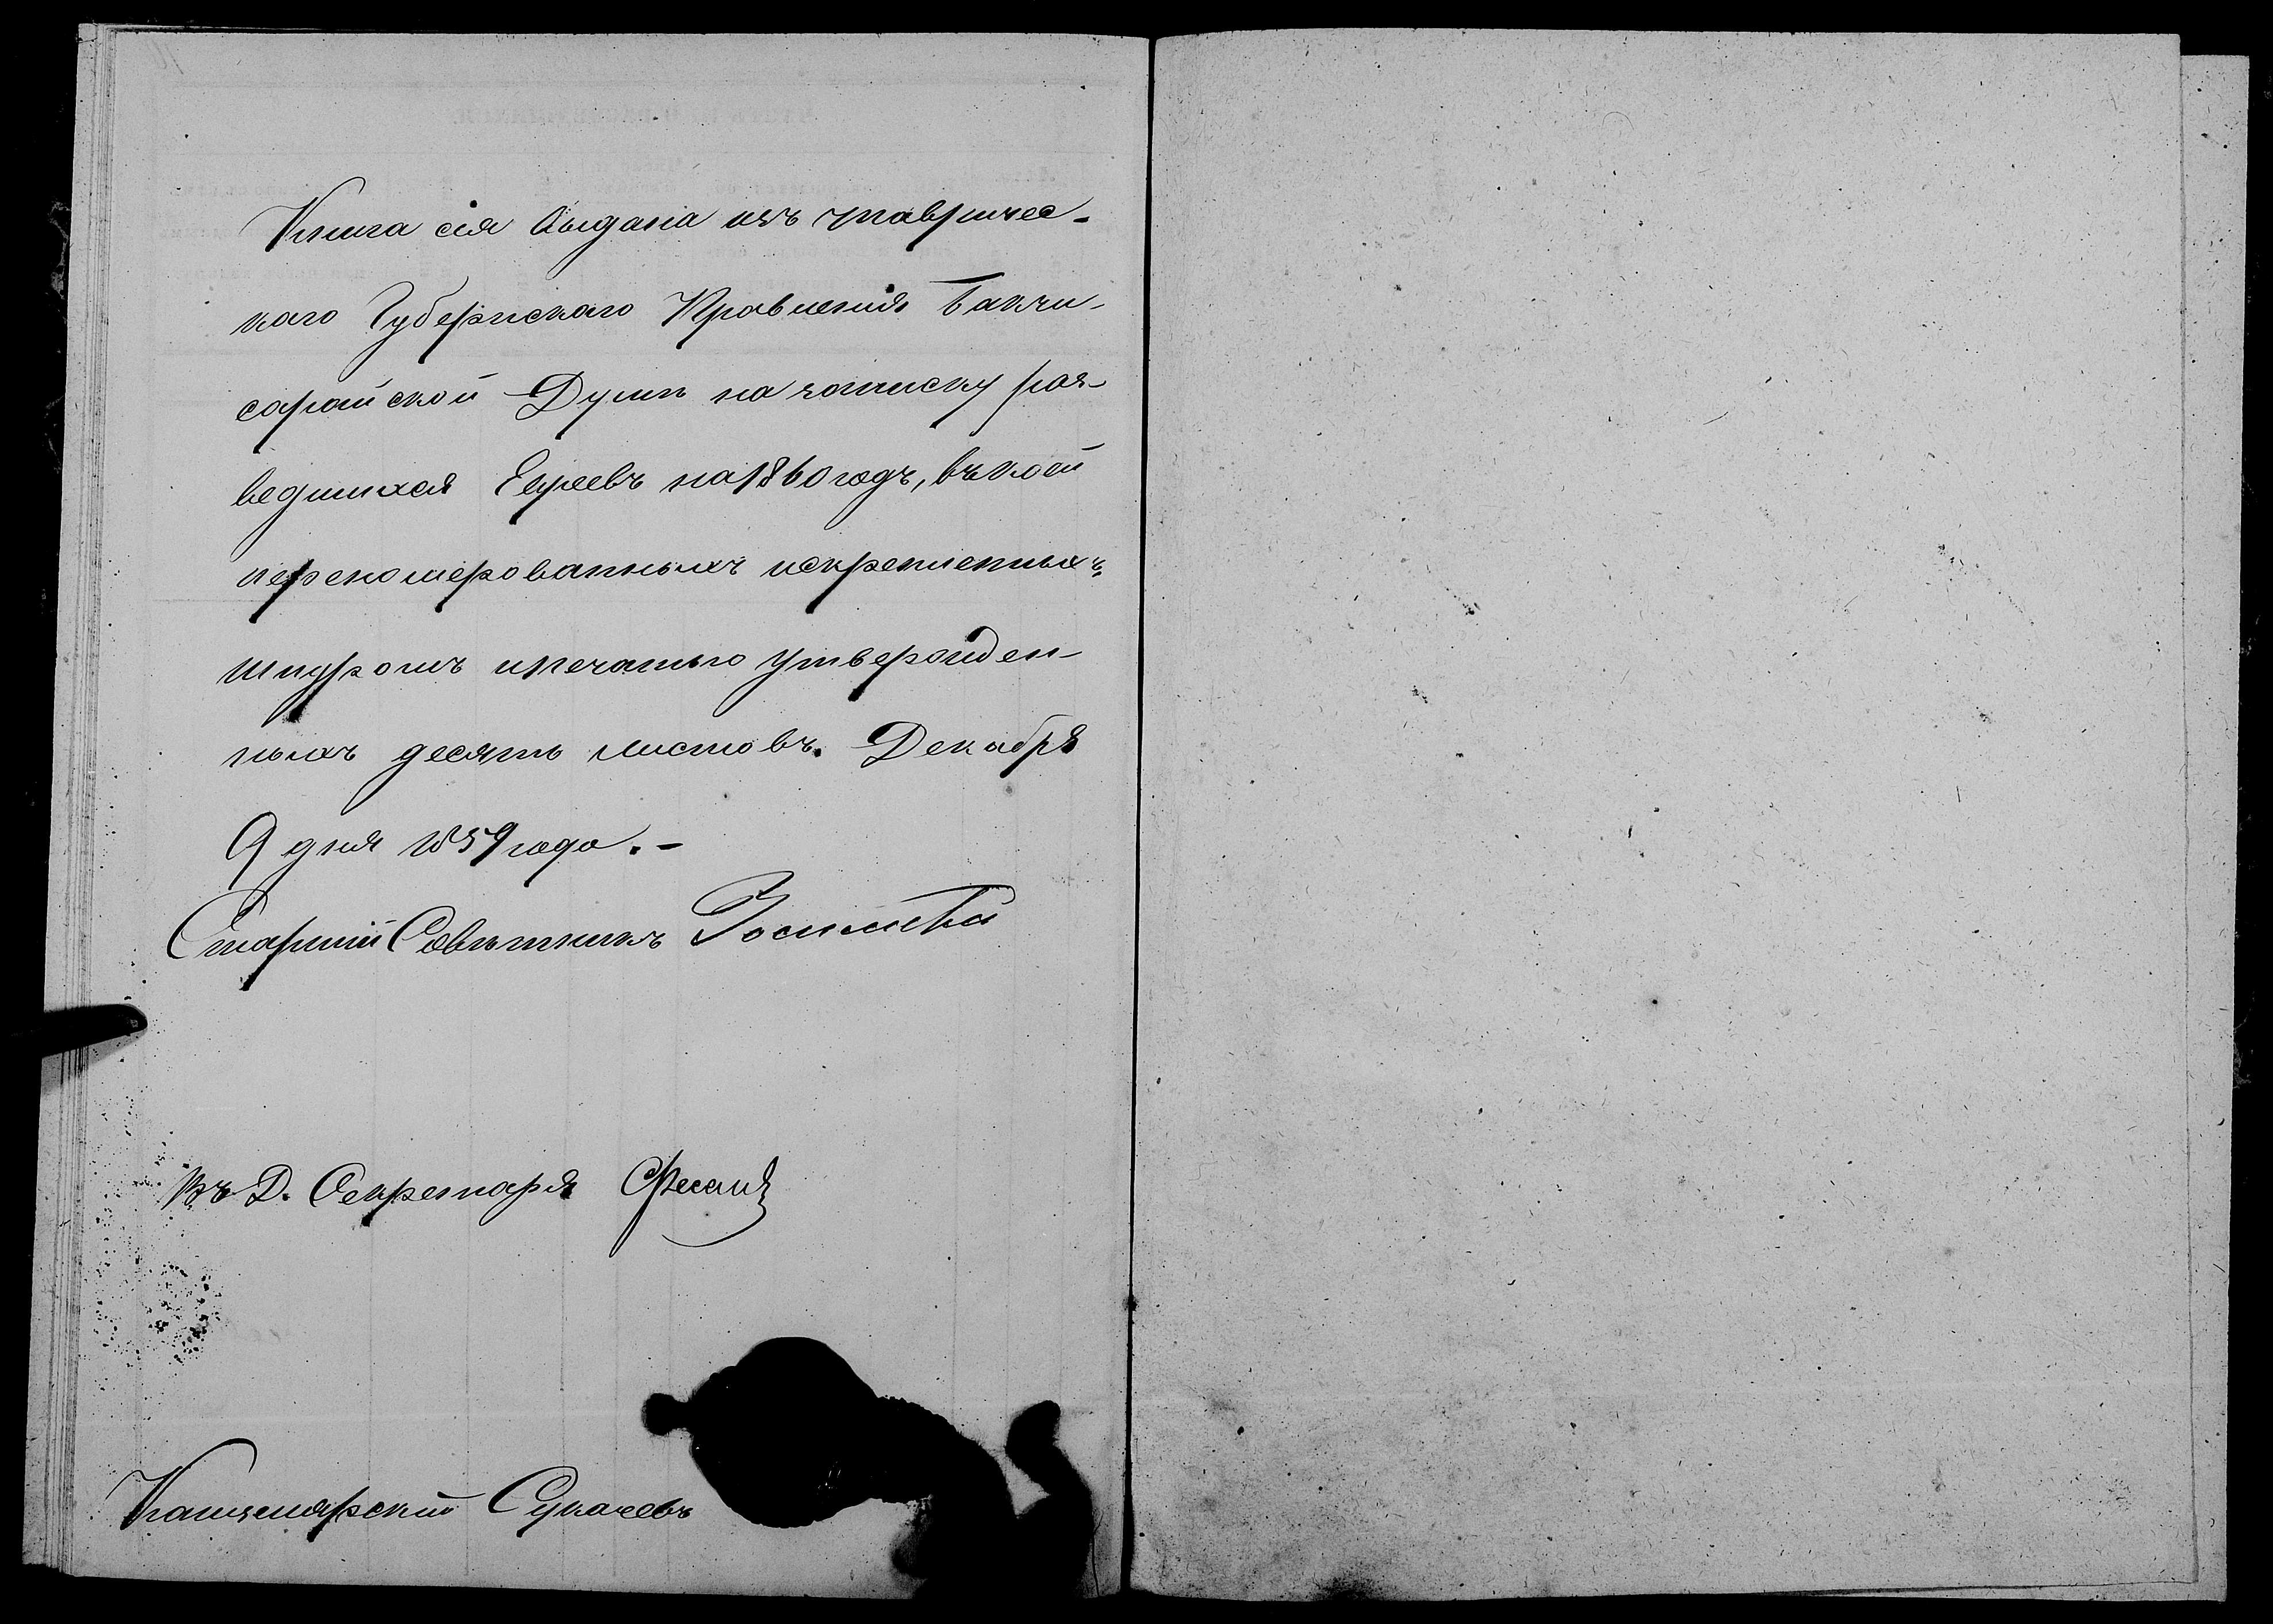 Книга сія выдана изъ Тавричес-
каго Губернскаго Правленія Бакчи-
сарайской Думѣ на записку раз-
ведшихся Евреевъ на 1860 годъ, въ коей
переномерованныхъ искрепленныхъ
шнуромъ ипечатью утвержден-
ныхъ десять листовъ. Декабря
9 дня 1859 года.-
Старшій Совѣтникъ
Въ Д. Секретаря
Канцелярскій Сукачевъ